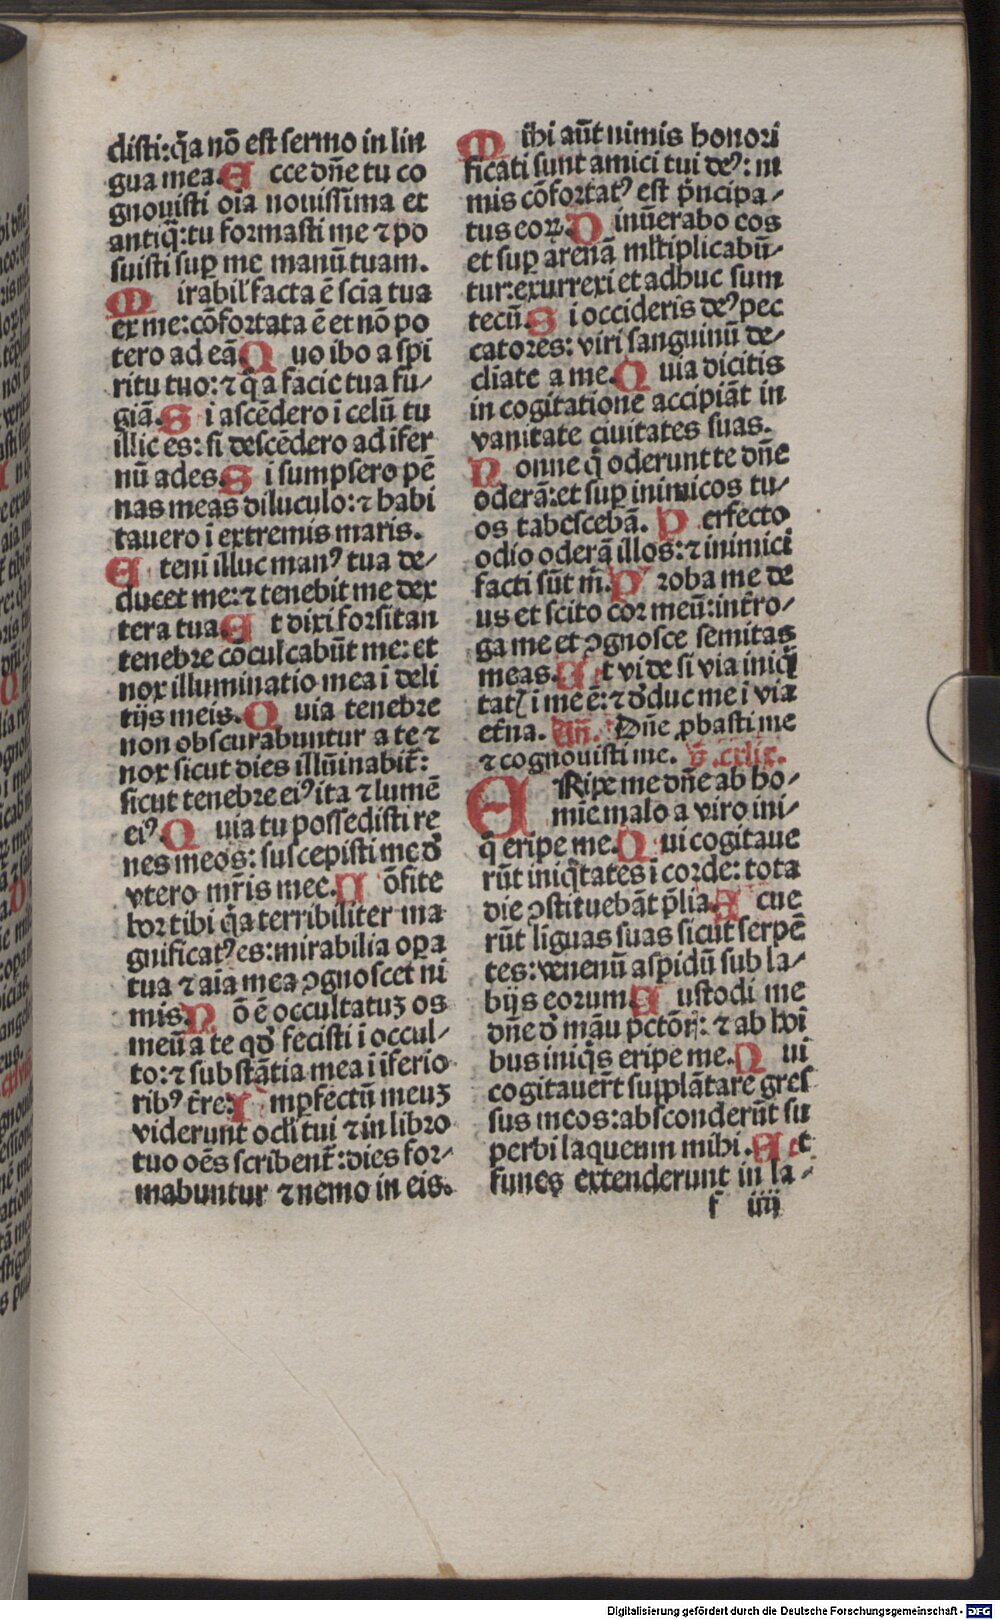 disti:q̄a nō est sermo in lin
gua mea. Ecce dn̄e tu co
gnouisti oīa nouissima et
antiq̄:tu formasti me ⁊ po
suisti sup̄ me manū tuam.
Mirabil' facta ē scīa tua
ex me:cōfortata ē et nō po
tero ad eā. Quo ibo a spi
ritu tuo:⁊ q̄ a facie tua fu/
giā. Si ascēdero ī celū tu
illic es: si descēdero ad īfer
nū ades. Si sumpsero pē
nas meas diluculo:⁊ habi
tauero ī extremis maris.
Etenī illuc manꝰ tua de/
ducet me:⁊ tenebit me dex
tera tua. Et dixi forsitan
tenebre cōculcabūt me: et
nox illuminatio mea ī deli
tijs meis. Quia tenebre
non obscurabuntur a te ⁊
nox sicut dies illūinabit̄:
sicut tenebre eiꝰ ita ⁊ lumē
eiꝰ. Quia tu possedisti re
nes meos: suscepisti me d̄
vtero mr̄is mee. Cōfite
bor tibi q̄a terribiliter ma
gnificatꝰ es:mirabilia oꝑa
tua ⁊ aīa mea ꝯgnoscet ni
mis. Nō ē occultatuꝫ os
meū a te qd̄ fecisti ī occul/
to:⁊ substātia mea ī īferio
ribꝰ t̄re. Imꝑfectū meuꝫ
viderunt oculi tui ⁊ in libro
tuo oēs scribent̄:dies for/
mabuntur ⁊ nemo in eis.
Mihi aūt nimis honori
ficati sunt amici tui deꝰ: ni
mis cōfortatꝰ est p̄ncipa/
tus eoꝝ. Dinūerabo eos
et sup̄ arenā ml̄tiplicabū/
tur:exurrexi et adhuc sum
tecū. Si occideris deꝰ pec
catores: viri sanguinū de/
cliate a me. Quia dicitis
in cogitatione accipiāt in
vanitate ciuitates suas.
Nonne q̄ oderunt te dn̄e
oderā:et sup̄ inimicos tu/
os tabescebā. Perfecto
odio oderā illos:⁊ inimici
facti sūt m̄. Proba me de
us et scito cor meū:int̄ro/
ga me et ꝯgnosce semitas
meas. Et vide si via iniq̄
tatꝭ ī me ē:⁊ d̄duc me ī via
et̄na. Añ. Dn̄e ꝓbasti me
⁊ cognouisti me. p̄s .cxlix.
ERipe me dn̄e ab ho/
mīe malo a viro ini/
q̄ eripe me. Qui cogitaue
rūt iniq̄tates ī corde: tota
die ꝯstituebāt p̄lia. Acue
rūt līguas suas sicut serpē
tes:venenū aspidū sub la/
bijs eorum. Custodi me
dn̄e d̄ māu pctōꝝ: ⁊ ab hoī
bus iniq̄s eripe me. Qui
cogitauer̄t supplātare gres
sus meos:absconderūt su
perbi laqueum mihi. Et
funes extenderunt in la/
f iiij
Digitalisierung gefördert durch die Deutsche Forschungsgemeinschaft - DFG